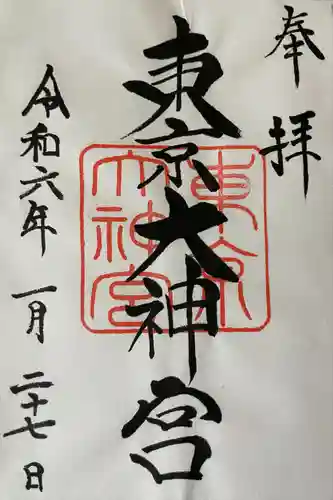 奉拝
東京大神宮
東京大神宮
令和六年一月二十七日